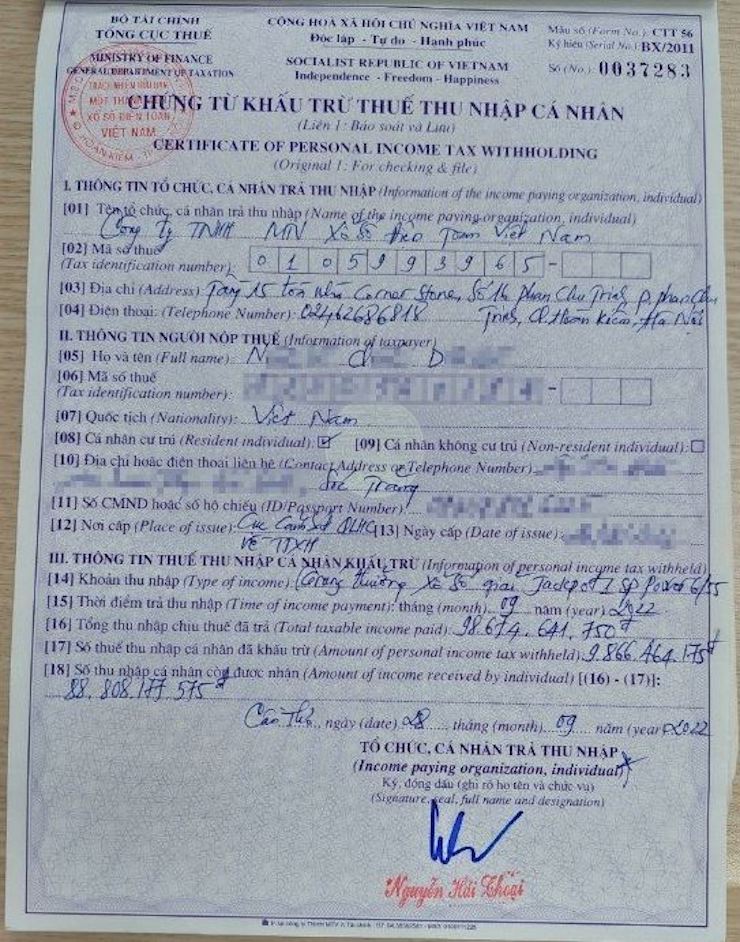 BỘ TÀI CHÍNH
TỔNG CỤC THUẾ
MINISTRY OF FINANCE
GENERAL DEPARTMENT OF TAXATION
CỘNG HOÀ XÃ HỘI CHỦ NGHĨA VIỆT NAM
Độc lập - Tự do - Hạnh phúc
SOCIALIST REPUBLIC OF VIETNAM
Independence - Freedom - Happiness
Mẫu số (Form No.): CTT 56
Ký hiệu (Serial No.) BX/2011
Số (No.): 0037283
TRÁCH NHIỆM HỮU HẠN
MỘT THÀNH
XỔ SỐ ĐIỆN TOÁN
VIỆT NAM
CHỨNG TỪ KHẤU TRỪ THUẾ THU NHẬP CÁ NHÂN
(Liên 1: Báo soát và Lưu)
CERTIFICATE OF PERSONAL INCOME TAX WITHHOLDING
(Original 1: For checking & file)
I. THÔNG TIN TỔ CHỨC, CÁ NHÂN TRẢ THU NHẬP (Information of the income paying organization, individual)
[01] Tên tổ chức, cá nhân trả thu nhập (Name of the income paying organization, individual)
Công ty TNHH MTV Xổ Số Điện Toán Việt Nam
[02] Mã số thuế
(Tax identification number): 0105993965 -
[03] Địa chỉ (Address): Tầng 15 toà nhà Corner Stone, Số 16 Phan Chu Trinh, P. Phan Chu
[04] Điện thoại: (Telephone Number): 02462686818 Trinh, Q. Hoàn Kiếm, Hà Nội
II. THÔNG TIN NGƯỜI NỘP THUẾ (Information of taxpayer)
[05] Họ và tên (Full name): N D
[06] Mã số thuế
(Tax identification number): -
[07] Quốc tịch (Nationality): Việt Nam
[08] Cá nhân cư trú (Resident individual): ☑ [09] Cá nhân không cư trú (Non-resident individual): ☐
[10] Địa chỉ hoặc điện thoại liên hệ (Contact Address or Telephone Number):
Sóc Trăng
[11] Số CMND hoặc số hộ chiếu (ID/Passport Number):
[12] Nơi cấp (Place of issue): Cục Cảnh sát QLHC [13] Ngày cấp (Date of issue):
Về TTXH
III. THÔNG TIN THUẾ THU NHẬP CÁ NHÂN KHẤU TRỪ (Information of personal income tax withheld)
[14] Khoản thu nhập (Type of income): (Trúng thưởng xổ số giải Jackpot 1 SP Power 6/55
[15] Thời điểm trả thu nhập (Time of income payment): tháng (month) 09 năm (year) 2022
[16] Tổng thu nhập chịu thuế đã trả (Total taxable income paid): 98.674.641.750đ
[17] Số thuế thu nhập cá nhân đã khấu trừ (Amount of personal income tax withheld): 9.866.464.175đ
[18] Số thu nhập cá nhân còn được nhận (Amount of income received by individual) [(16) - (17)]:
88.808.177.575đ
Cần Thơ, ngày (date) 28 tháng (month) 09 năm (year) 2022
TỔ CHỨC, CÁ NHÂN TRẢ THU NHẬP
(Income paying organization, individual)
Ký, đóng dấu (ghi rõ họ tên và chức vụ)
(Signature, seal, full name and designation)
Nguyễn Hải Thoại